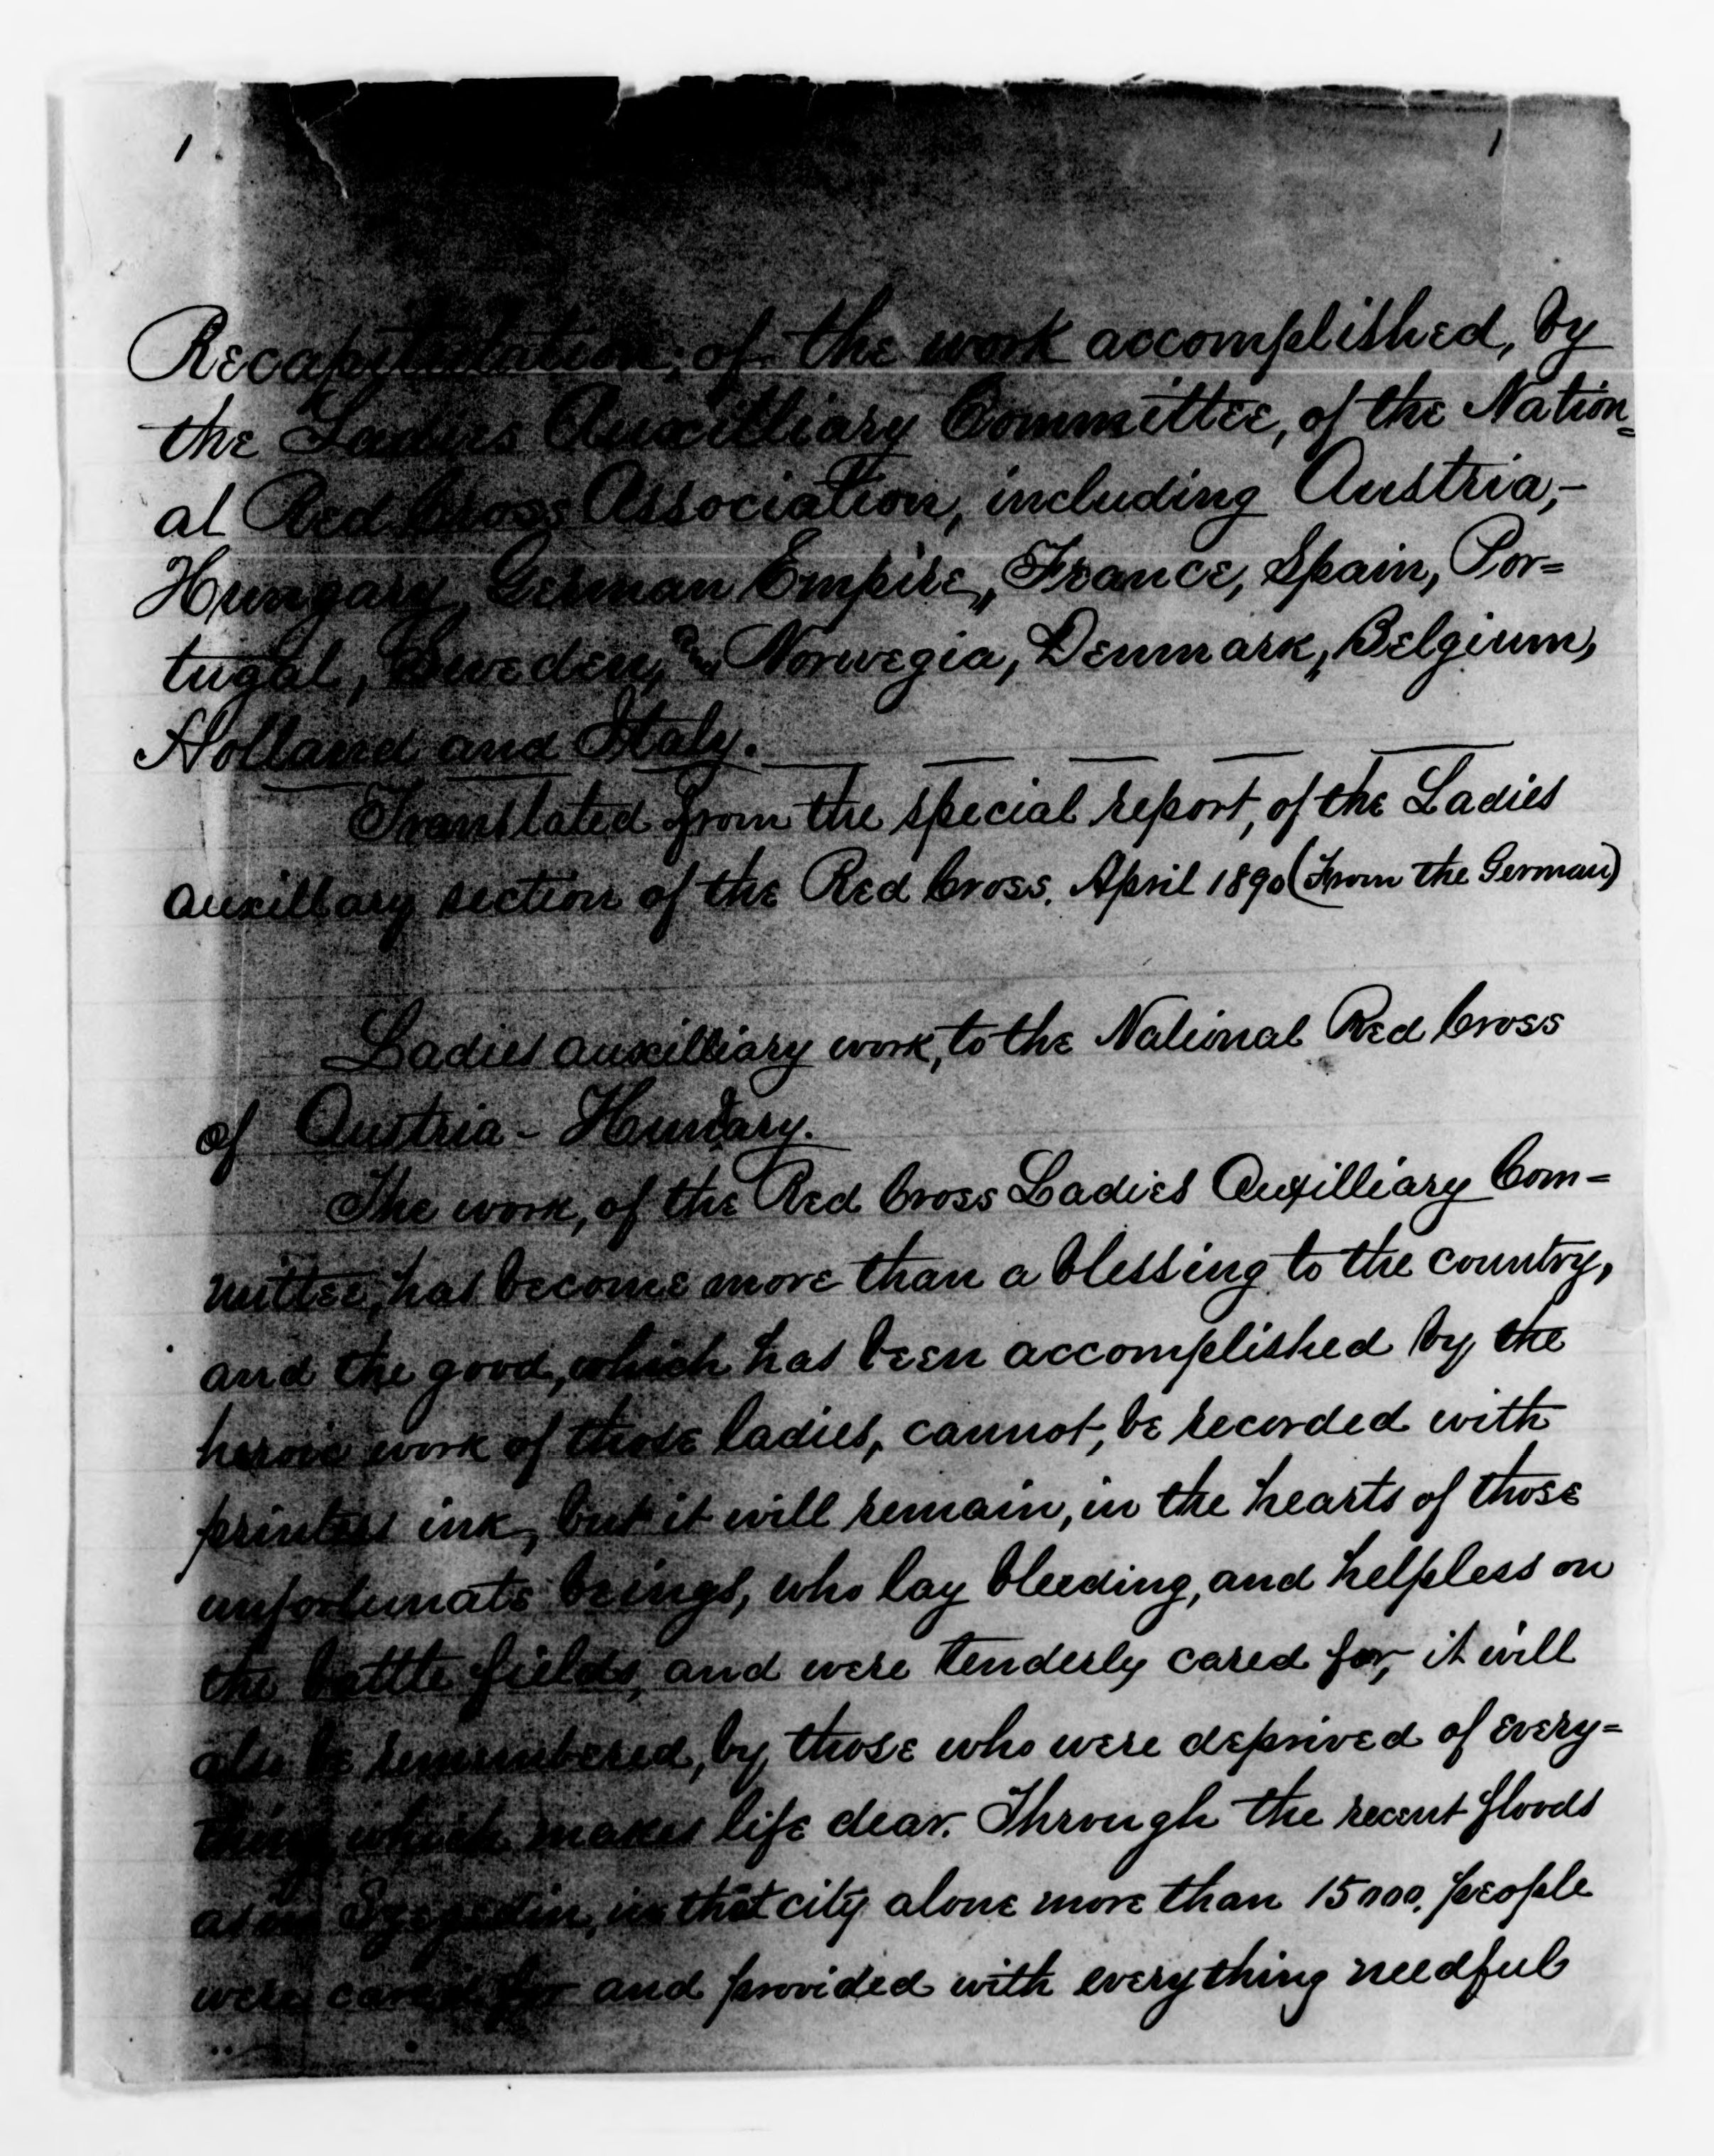 1 1
Recapitulation, of the work accomplished, by
the Ladies Auxilliary Committee, of the Nation=
al Red Cross Association, including Austria,-
Hungary, German Empire, France, Spain, Por=
tugal, Sweden, Norwegia, Denmark, Belgium,
Holland and Italy.
Translated from the special report, of the Ladies
auxillary section of the Red Cross. April 1890 (From the German)
Ladies auxilliary work, to the National Red Cross
of Austria - Hungary.
The work, of the Red Cross Ladies Auxilliary Com=
mittee, has become more than a blessing to the country,
and the good, which has been accomplished by the
heroic work of those ladies, cannot, be recorded with
printers ink, but it will remain, in the hearts of those
unfortunate beings, who lay bleeding, and helpless on
the battle fields, and were tenderly cared for, it will
also be remembered, by those who were deprived of every=
thing which makes life dear. Through the recent floods
as in Szegedin, in that city alone more than 15000. people
were cared for and provided with everything needful